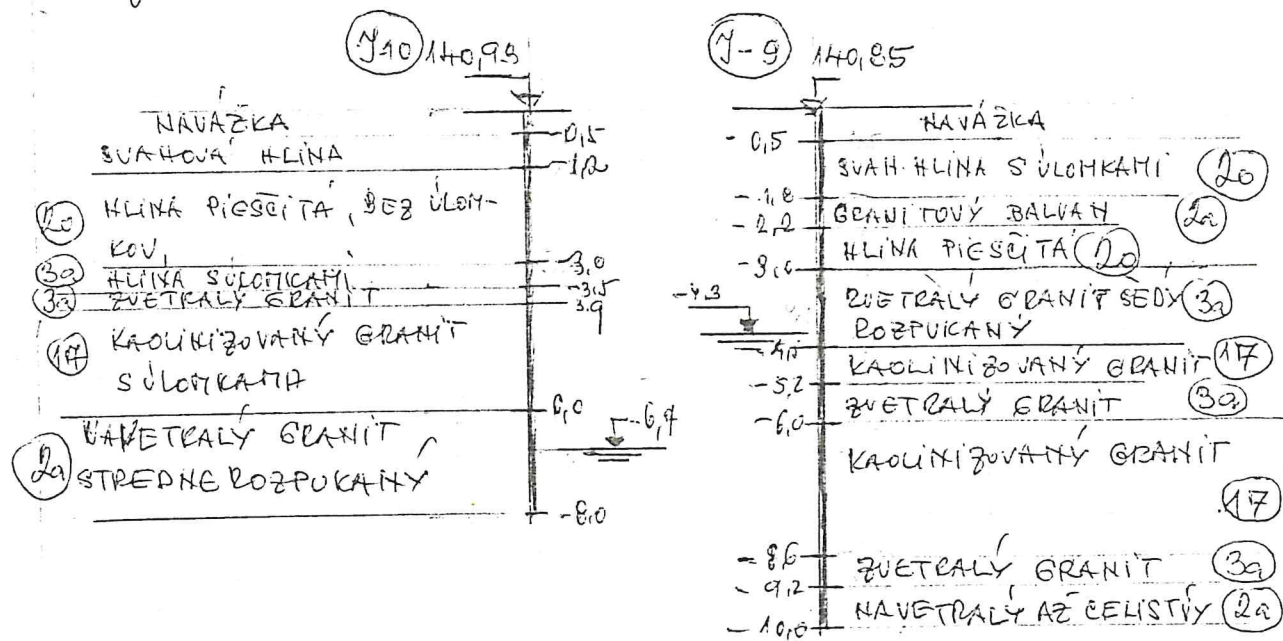 J10 140,93
NAVÁŽKA
-0,5
SVAHOVÁ HLINA
-1,2
20 HLINA PIESČITÁ, BEZ ÚLOM-
KOV,
-3,0
3a HLINA S ÚLOMKAMI
-3,5
3a ZVETRALÝ GRANIT
3,9
17 KAOLINIZOVANÝ GRANIT
S ÚLOMKAMA
-6,0
NAVETRALÝ GRANIT
-6,7
2a STREDNE ROZPUKANÝ
-8,0
J-9 140,85
NAVÁŽKA
-0,5
SVAH. HLINA S ÚLOMKAMI 20
-1,8
GRANITOVÝ BALVAN 2a
-2,2
HLINA PIESČITÁ 20
ZVETRALÝ GRANIT ŠEDÝ 3a
-4,3
ROZPUKANÝ
KAOLINIZOVANÝ GRANIT 17
-5,2
ZVETRALÝ GRANIT 3a
-6,0
KAOLINIZOVANÝ GRANIT
17
-8,6
ZVETRALÝ GRANIT 3a
-9,2
NAVETRALÝ AŽ CELISTVÝ 2a
-10,0